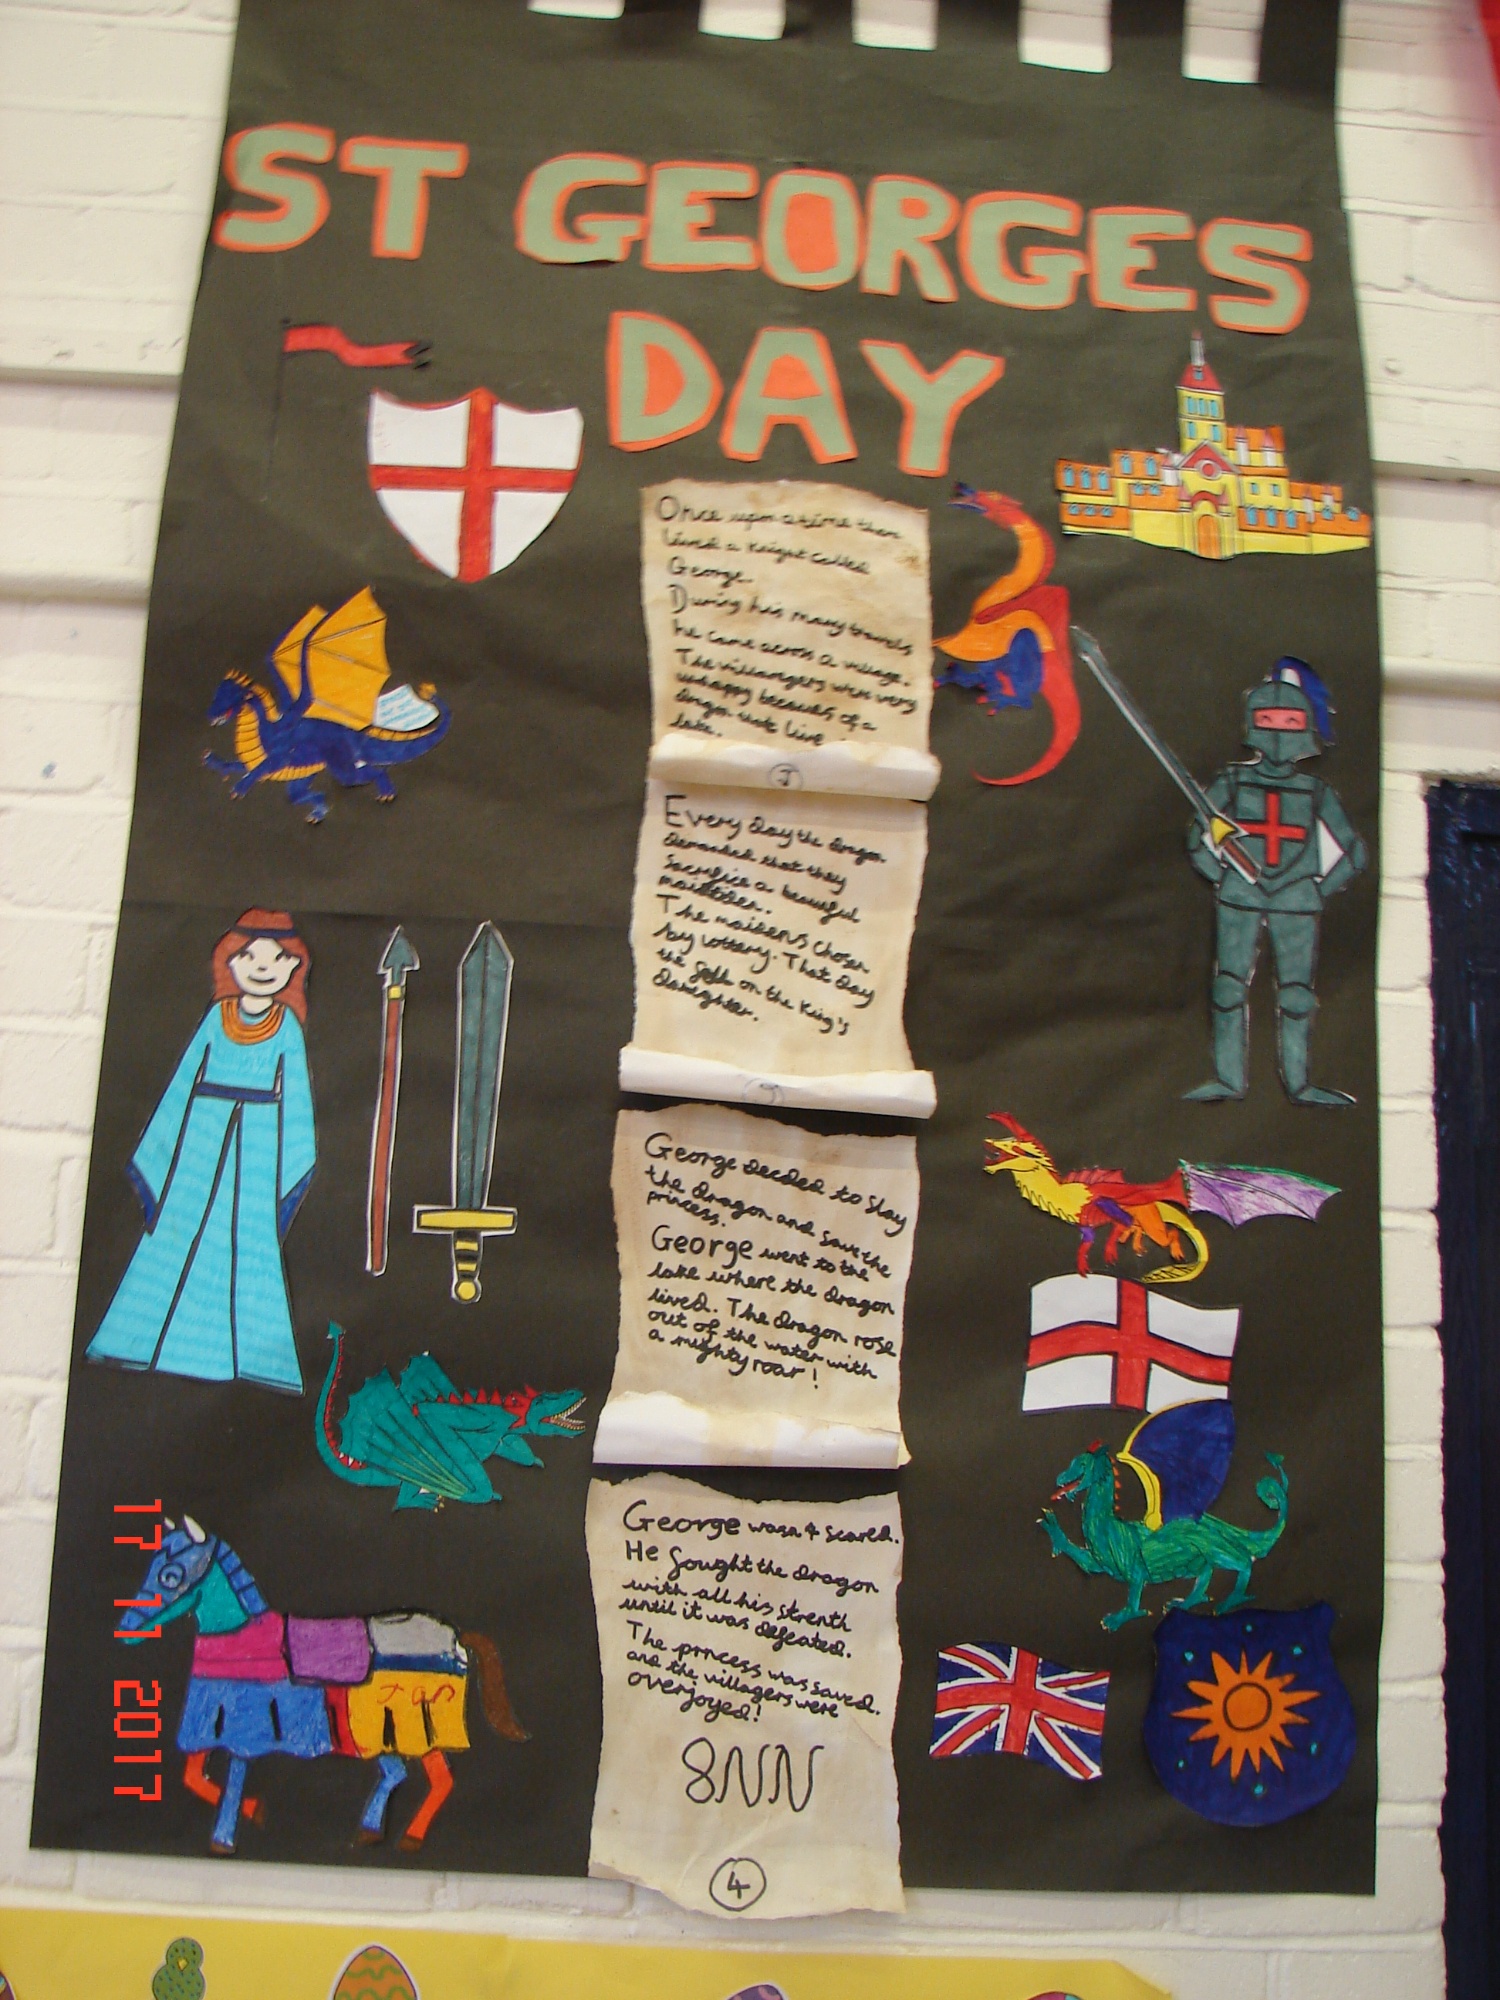 ST GEORGES
DAY
Once upon a time there
lived a Knight called
George.
During his many travels
he came across a village.
The villaregers were very
unhappy because of a
dragon that live
lake.
1
Every day the dragon
demanded that they
sacrifice a beautiful
maidden.
The maidens chosen
by lottery. That day
the fell on the King's
daughter.
George decded to slay
the dragon and save the
princess.
George went to the
lake where the dragon
lived. The dragon rose
out of the water with
a mighty roar!
George wasn't scared.
He fought the dragon
with all his strenth
until it was defeated.
The princess was saved
and the villagers were
overjoyed!
8NN
4
17 11 2017